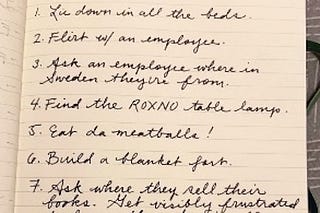 1. Lie down in all the beds.
2. Flirt w/ an employee.
3. Ask an employee where in
Sweden they're from.
4. Find the ROXNO table lamp.
5. Eat da meatballs!
6. Build a blanket fort.
7. Ask where they sell their
books. Get visibly frustrated